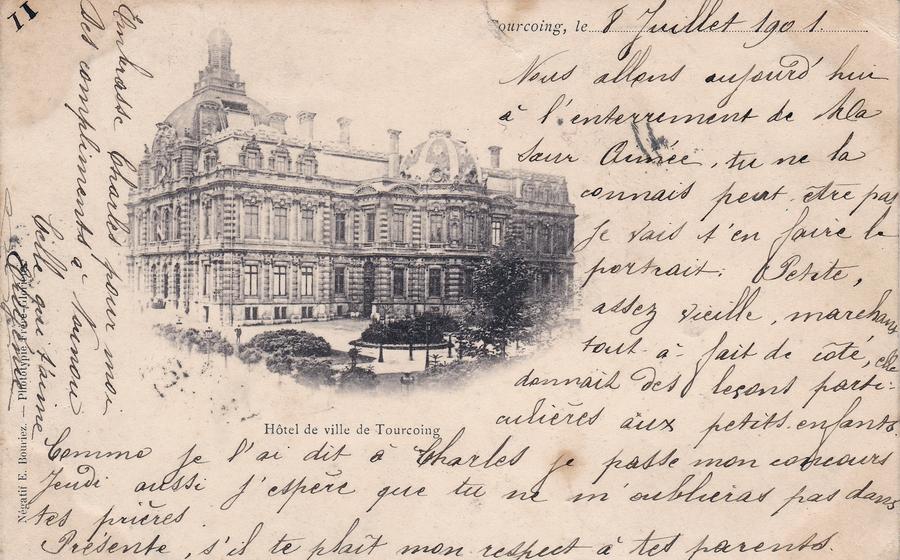 11
Tourcoing, le 8 Juillet 1901.
Nous allons aujourd'hui
à l'enterrement de Ma
Sœur Aimée, tu ne la
connais peut être pas
je vais t'en faire le
portrait: Petite,
assez vieille, marchant
tout à fait de côté, elle
donnait des leçons parti-
culières aux petits enfants.
Comme je l'ai dit à Charles je passe mon concours
Jeudi aussi j'espère que tu ne m'oublieras pas dans
tes prières.
Présente, s'il te plaît mon respect à tes parents
Embrasse Charles pour moi
Des compliments à Nounou
Celle qui t'aime
Hôtel de ville de Tourcoing
Négatif E. Bouriez. — Phototypie